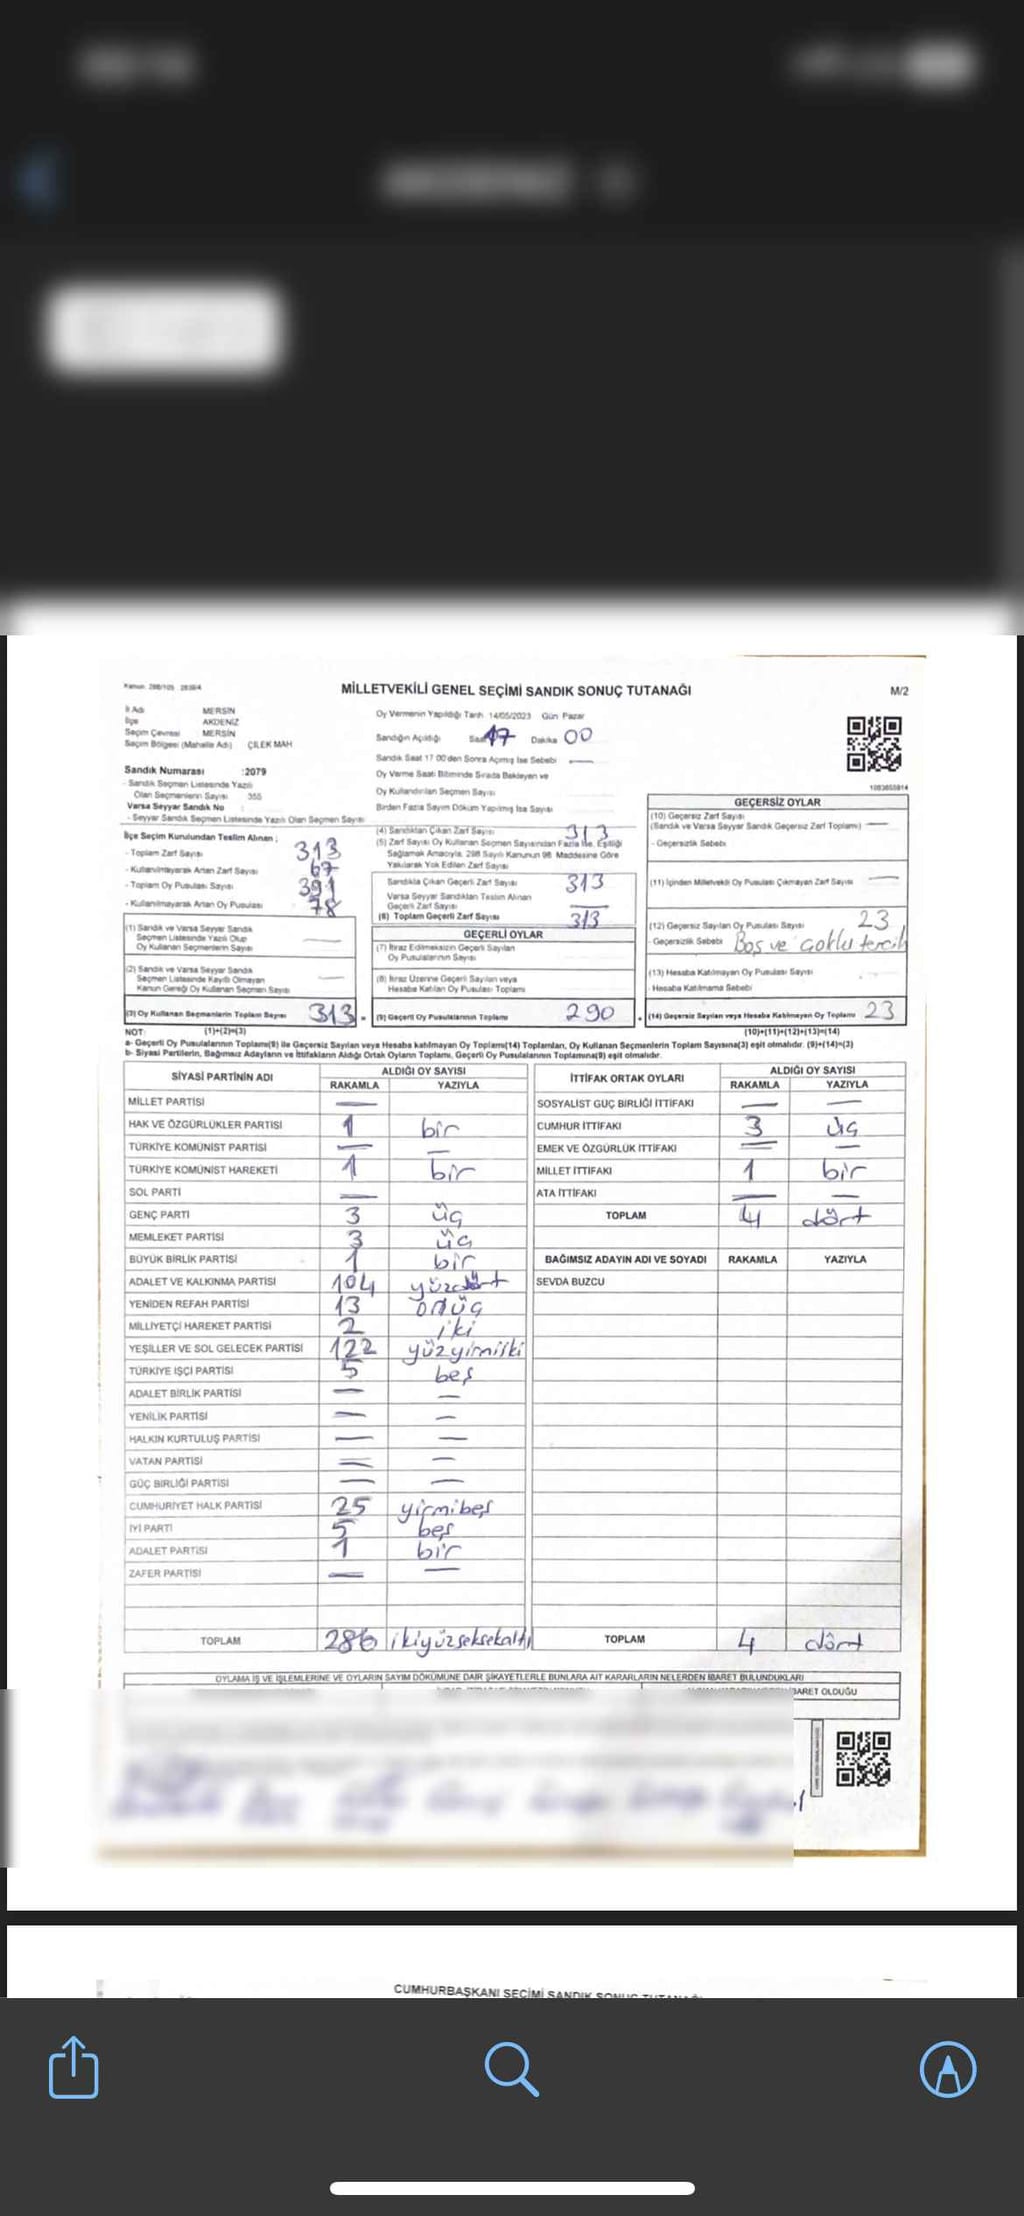 Kanun: 298/105 2839/4
MİLLETVEKİLİ GENEL SEÇİMİ SANDIK SONUÇ TUTANAĞI
M/2
İl Adı MERSİN
İlçe AKDENİZ
Seçim Çevresi MERSİN
Seçim Bölgesi (Mahalle Adı) ÇİLEK MAH
Sandık Numarası :2079
- Sandık Seçmen Listesinde Yazılı
Olan Seçmenlerin Sayısı 355
Varsa Seyyar Sandık No :
- Seyyar Sandık Seçmen Listesinde Yazılı Olan Seçmen Sayısı
Oy Vermenin Yapıldığı Tarih 14/05/2023 Gün Pazar
Sandığın Açıldığı Saat 17 Dakika 00
Sandık Saat 17 00'den Sonra Açımış İse Sebebi —
Oy Verme Saati Bitiminde Sırada Bekleyen ve
Oy Kullandırılan Seçmen Sayısı
Birden Fazla Sayım Döküm Yapılmış İse Sayısı
İlçe Seçim Kurulundan Teslim Alınan ;
- Toplam Zarf Sayısı 313
- Kullanılmayarak Artan Zarf Sayısı 67
- Toplam Oy Pusulası Sayısı 391
- Kullanılmayarak Artan Oy Pusulası 78
(1) Sandık ve Varsa Seyyar Sandık
Seçmen Listesinde Yazılı Olup
Oy Kullanan Seçmenlerin Sayısı —
(2) Sandık ve Varsa Seyyar Sandık
Seçmen Listesinde Kayıtlı Olmayan
Kanun Gereği Oy Kullanan Seçmen Sayısı —
(3) Oy Kullanan Seçmenlerin Toplam Sayısı 313 =
(4) Sandıktan Çıkan Zarf Sayısı 313
(5) Zarf Sayısı Oy Kullanan Seçmen Sayısından Fazla İse, Eşitliği
Sağlamak Amacıyla, 298 Sayılı Kanunun 98. Maddesine Göre
Yakılarak Yok Edilen Zarf Sayısı
Sandıkta Çıkan Geçerli Zarf Sayısı 313
Varsa Seyyar Sandıktan Teslim Alınan
Geçerli Zarf Sayısı —
(6) Toplam Geçerli Zarf Sayısı 313
GEÇERLİ OYLAR
(7) İtiraz Edilmeksizin Geçerli Sayılan
Oy Pusulalarının Sayısı
(8) İtiraz Üzerine Geçerli Sayılan veya
Hesaba Katılan Oy Pusulası Toplamı
(9) Geçerli Oy Pusulalarının Toplamı 290
1083655914
GEÇERSİZ OYLAR
(10) Geçersiz Zarf Sayısı
(Sandık ve Varsa Seyyar Sandık Geçersiz Zarf Toplamı) —
- Geçersizlik Sebebi
(11) İçinden Milletvekili Oy Pusulası Çıkmayan Zarf Sayısı —
(12) Geçersiz Sayılan Oy Pusulası Sayısı 23
- Geçersizlik Sebebi Boş ve çoklu tercih
(13) Hesaba Katılmayan Oy Pusulası Sayısı —
- Hesaba Katılmama Sebebi
(14) Geçersiz Sayılan veya Hesaba Katılmayan Oy Toplamı 23
NOT: (1)+(2)=(3) (10)+(11)+(12)+(13)=(14)
a- Geçerli Oy Pusulalarının Toplamı(9) ile Geçersiz Sayılan veya Hesaba katılmayan Oy Toplamı(14) Toplamları, Oy Kullanan Seçmenlerin Toplam Sayısına(3) eşit olmalıdır. (9)+(14)=(3)
b- Siyasi Partilerin, Bağımsız Adayların ve İttifakların Aldığı Ortak Oyların Toplamı, Geçerli Oy Pusulalarının Toplamına(9) eşit olmalıdır.
SİYASİ PARTİNİN ADI ALDIĞI OY SAYISI
RAKAMLA YAZIYLA
MİLLET PARTİSİ —
HAK VE ÖZGÜRLÜKLER PARTİSİ 1 bir
TÜRKİYE KOMÜNİST PARTİSİ — —
TÜRKİYE KOMÜNİST HAREKETİ 1 bir
SOL PARTİ —
GENÇ PARTİ 3 üç
MEMLEKET PARTİSİ 3 üç
BÜYÜK BİRLİK PARTİSİ 1 bir
ADALET VE KALKINMA PARTİSİ 104 yüzdört
YENİDEN REFAH PARTİSİ 13 onüç
MİLLİYETÇİ HAREKET PARTİSİ 2 iki
YEŞİLLER VE SOL GELECEK PARTİSİ 122 yüzyirmiiki
TÜRKİYE İŞÇİ PARTİSİ 5 beş
ADALET BİRLİK PARTİSİ — —
YENİLİK PARTİSİ — —
HALKIN KURTULUŞ PARTİSİ — —
VATAN PARTİSİ — —
GÜÇ BİRLİĞİ PARTİSİ — —
CUMHURİYET HALK PARTİSİ 25 yirmibeş
İYİ PARTİ 5 beş
ADALET PARTİSİ 1 bir
ZAFER PARTİSİ — —
TOPLAM 286 ikiyüzseksekaltı
İTTİFAK ORTAK OYLARI ALDIĞI OY SAYISI
RAKAMLA YAZIYLA
SOSYALİST GÜÇ BİRLİĞİ İTTİFAKI — —
CUMHUR İTTİFAKI 3 üç
EMEK VE ÖZGÜRLÜK İTTİFAKI — —
MİLLET İTTİFAKI 1 bir
ATA İTTİFAKI — —
TOPLAM 4 dört
BAĞIMSIZ ADAYIN ADI VE SOYADI RAKAMLA YAZIYLA
SEVDA BUZCU
TOPLAM 4 dört
OYLAMA İŞ VE İŞLEMLERİNE VE OYLARIN SAYIM DÖKÜMÜNE DAİR ŞİKAYETLERLE BUNLARA AİT KARARLARIN NELERDEN İBARET BULUNDUKLARI
İBARET OLDUĞU
CUMHURBAŞKANI SEÇİMİ SANDIK SONUÇ TUTANAĞI